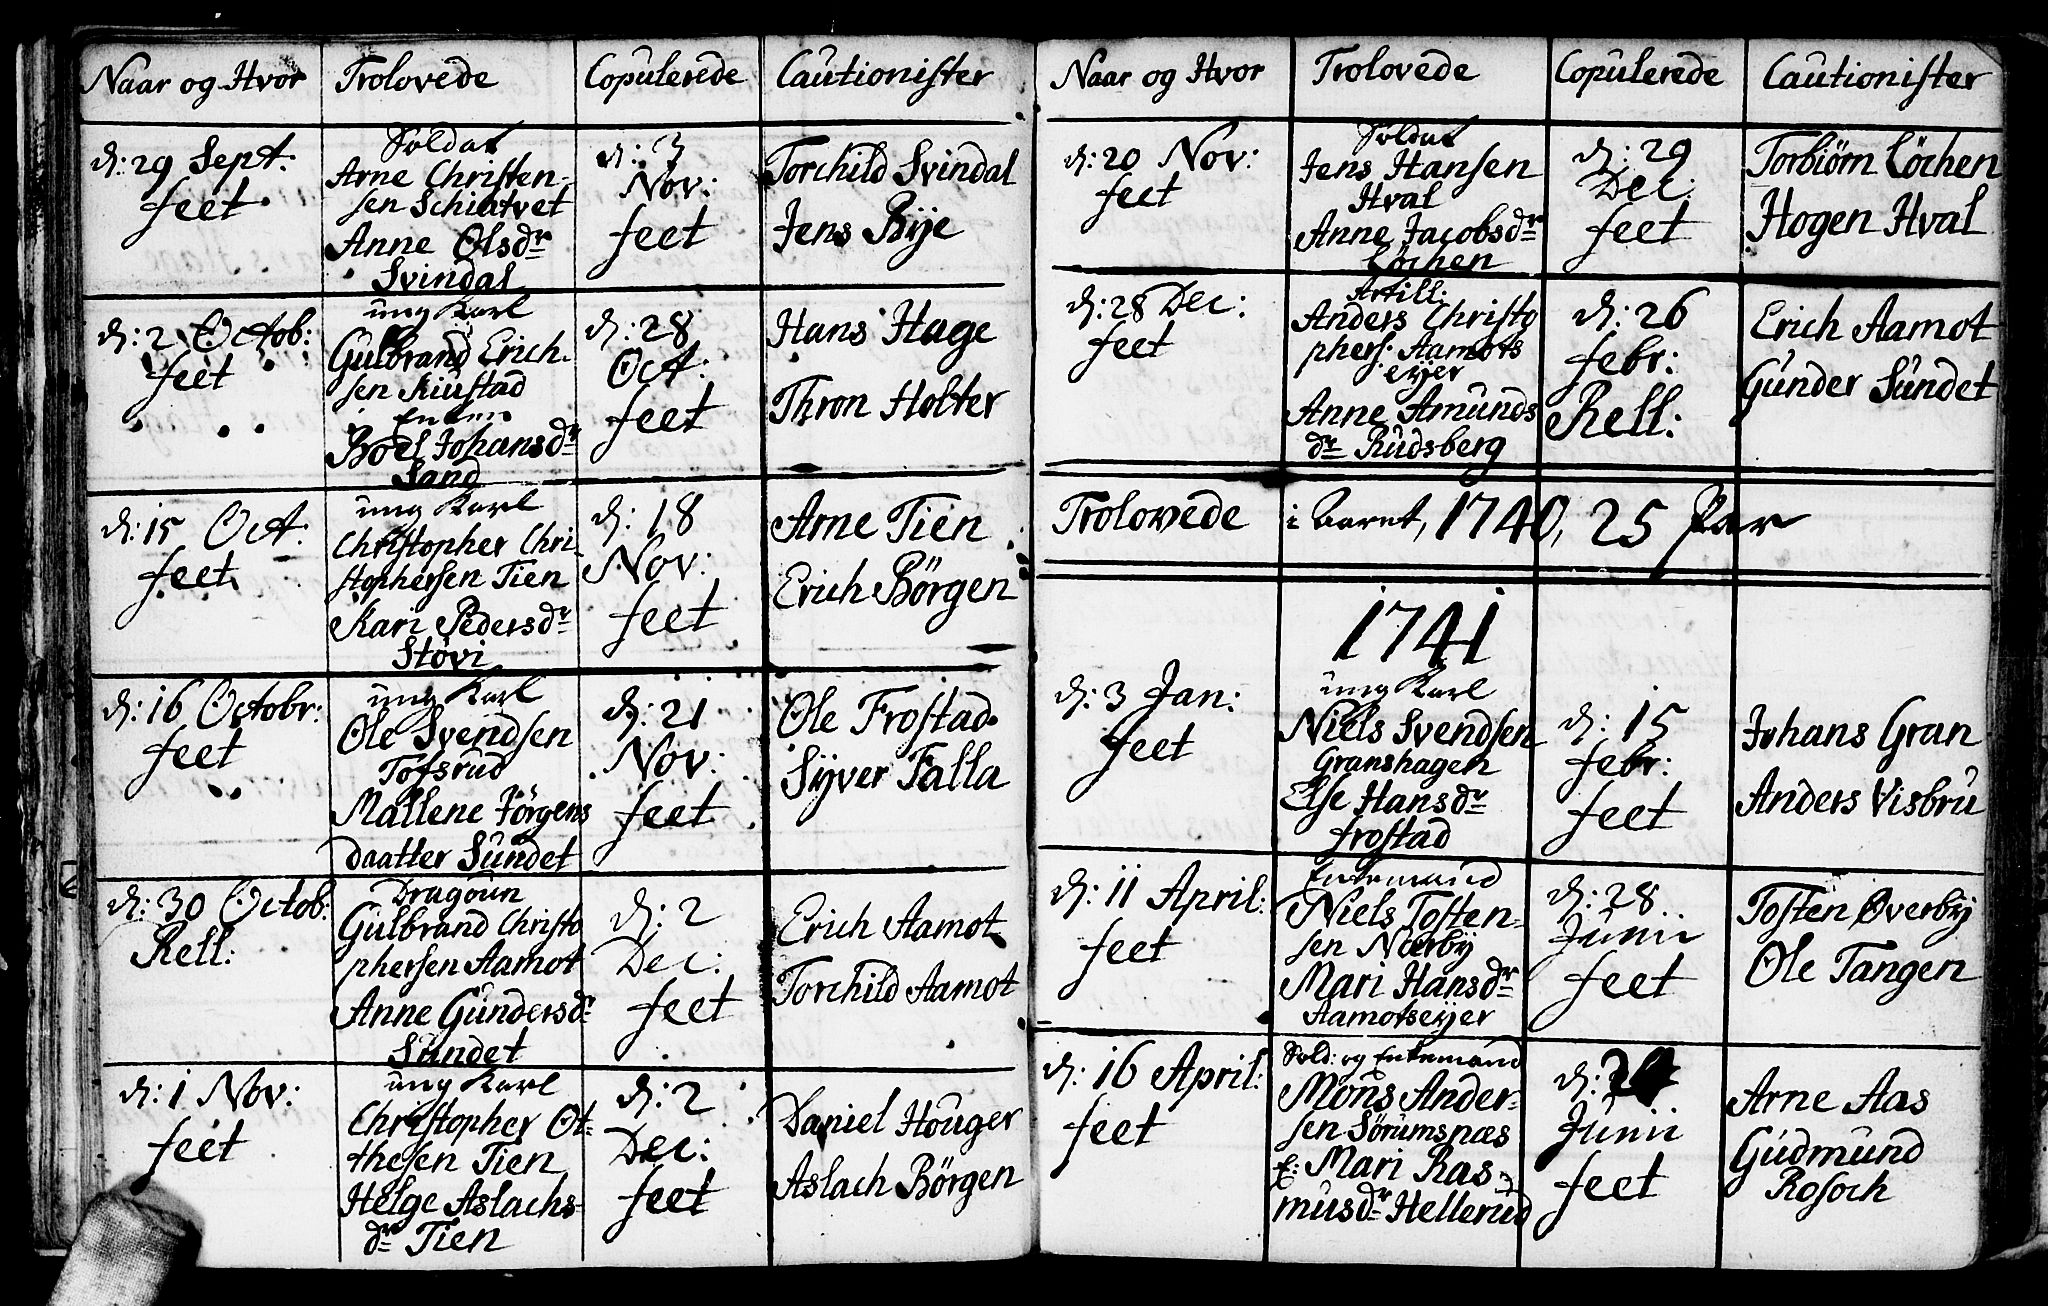 Naar og Hvor
Trolovede
Copulerede
Cautionister
d: 29 Sept:
feet
Soldat
Arne Christen-
sen Schiatvet
Anne Olsdr
Svindal
d: 3
Nov:
feet
Torchild Svindal
Jens Bÿe
d: 2 Octob:
feet
ung Karl
Gulbrand Erich-
sen Kiustad
Enken
Boel Johansdr
Sand
d: 28
Oct:
feet
Hans Hage
Thron Holter
d: 15 Oct:
feet
ung Karl
Christopher Chri-
stophersen Tien
Kari Pedersdr
Støvi
d: 18
Nov:
feet
Arne Tien
Erich Børgen
d: 16 Octobr:
feet
ung Karl
Ole Svendsen
Tofsrud
Mallene Jørgens
daatter Sundet
d: 21
Nov:
feet
Ole Frostad
Sÿver Falla
d: 30 Octob:
Rell:
Dragoun
Gulbrand Christo
phersen Aamot
Anne Gundersdr
Sundet
d: 2
Dec:
feet
Erich Aamot
Torchild Aamot
d: 1 Nov:
feet
ung Karl
Christopher Ot-
thesen Tien
Helge Aslachs-
dr Tien
d: 2
Dec:
feet
Daniel Houger
Aslach Børgen
Naar og Hvor
Trolovede
Copulerede
Cautionister
d: 20 Nov:
feet
Soldat
Jens Hansen
Hval
Anne Jacobsdr
Løchen
d: 29
Dec:
feet
Torbiørn Løchen
Hogen Hval
d: 28 Dec:
feet
Artill:
Anders Christo
phers: Aamots
eÿer
Anne Amunds
dr Rudsberg
d: 26
febr:
Rell:
Erich Aamot
Gunder Sundet
Trolovede i Aaret, 1740, 25 Par
1741
d: 3 Jan:
feet
ung Karl
Niels Svendsen
Granshagen
Else Hansdr
frostad
d: 15
febr:
feet
Johans Gran
Anders Visbru
d: 11 April:
feet
Enkemand
Niels Tosten-
sen Nærbÿ
Mari Hansdr
Aamotseÿer
d: 28
Junii
feet
Tosten Øverbÿ
Ole Tangen
d: 16 April:
feet
Sold: og Enkemand
Mons Ander-
sen Sørumsnæs
E: Mari Ras-
musdr Hellerud
d:
Junii
feet
Arne Aas
Gudmund
Rosock